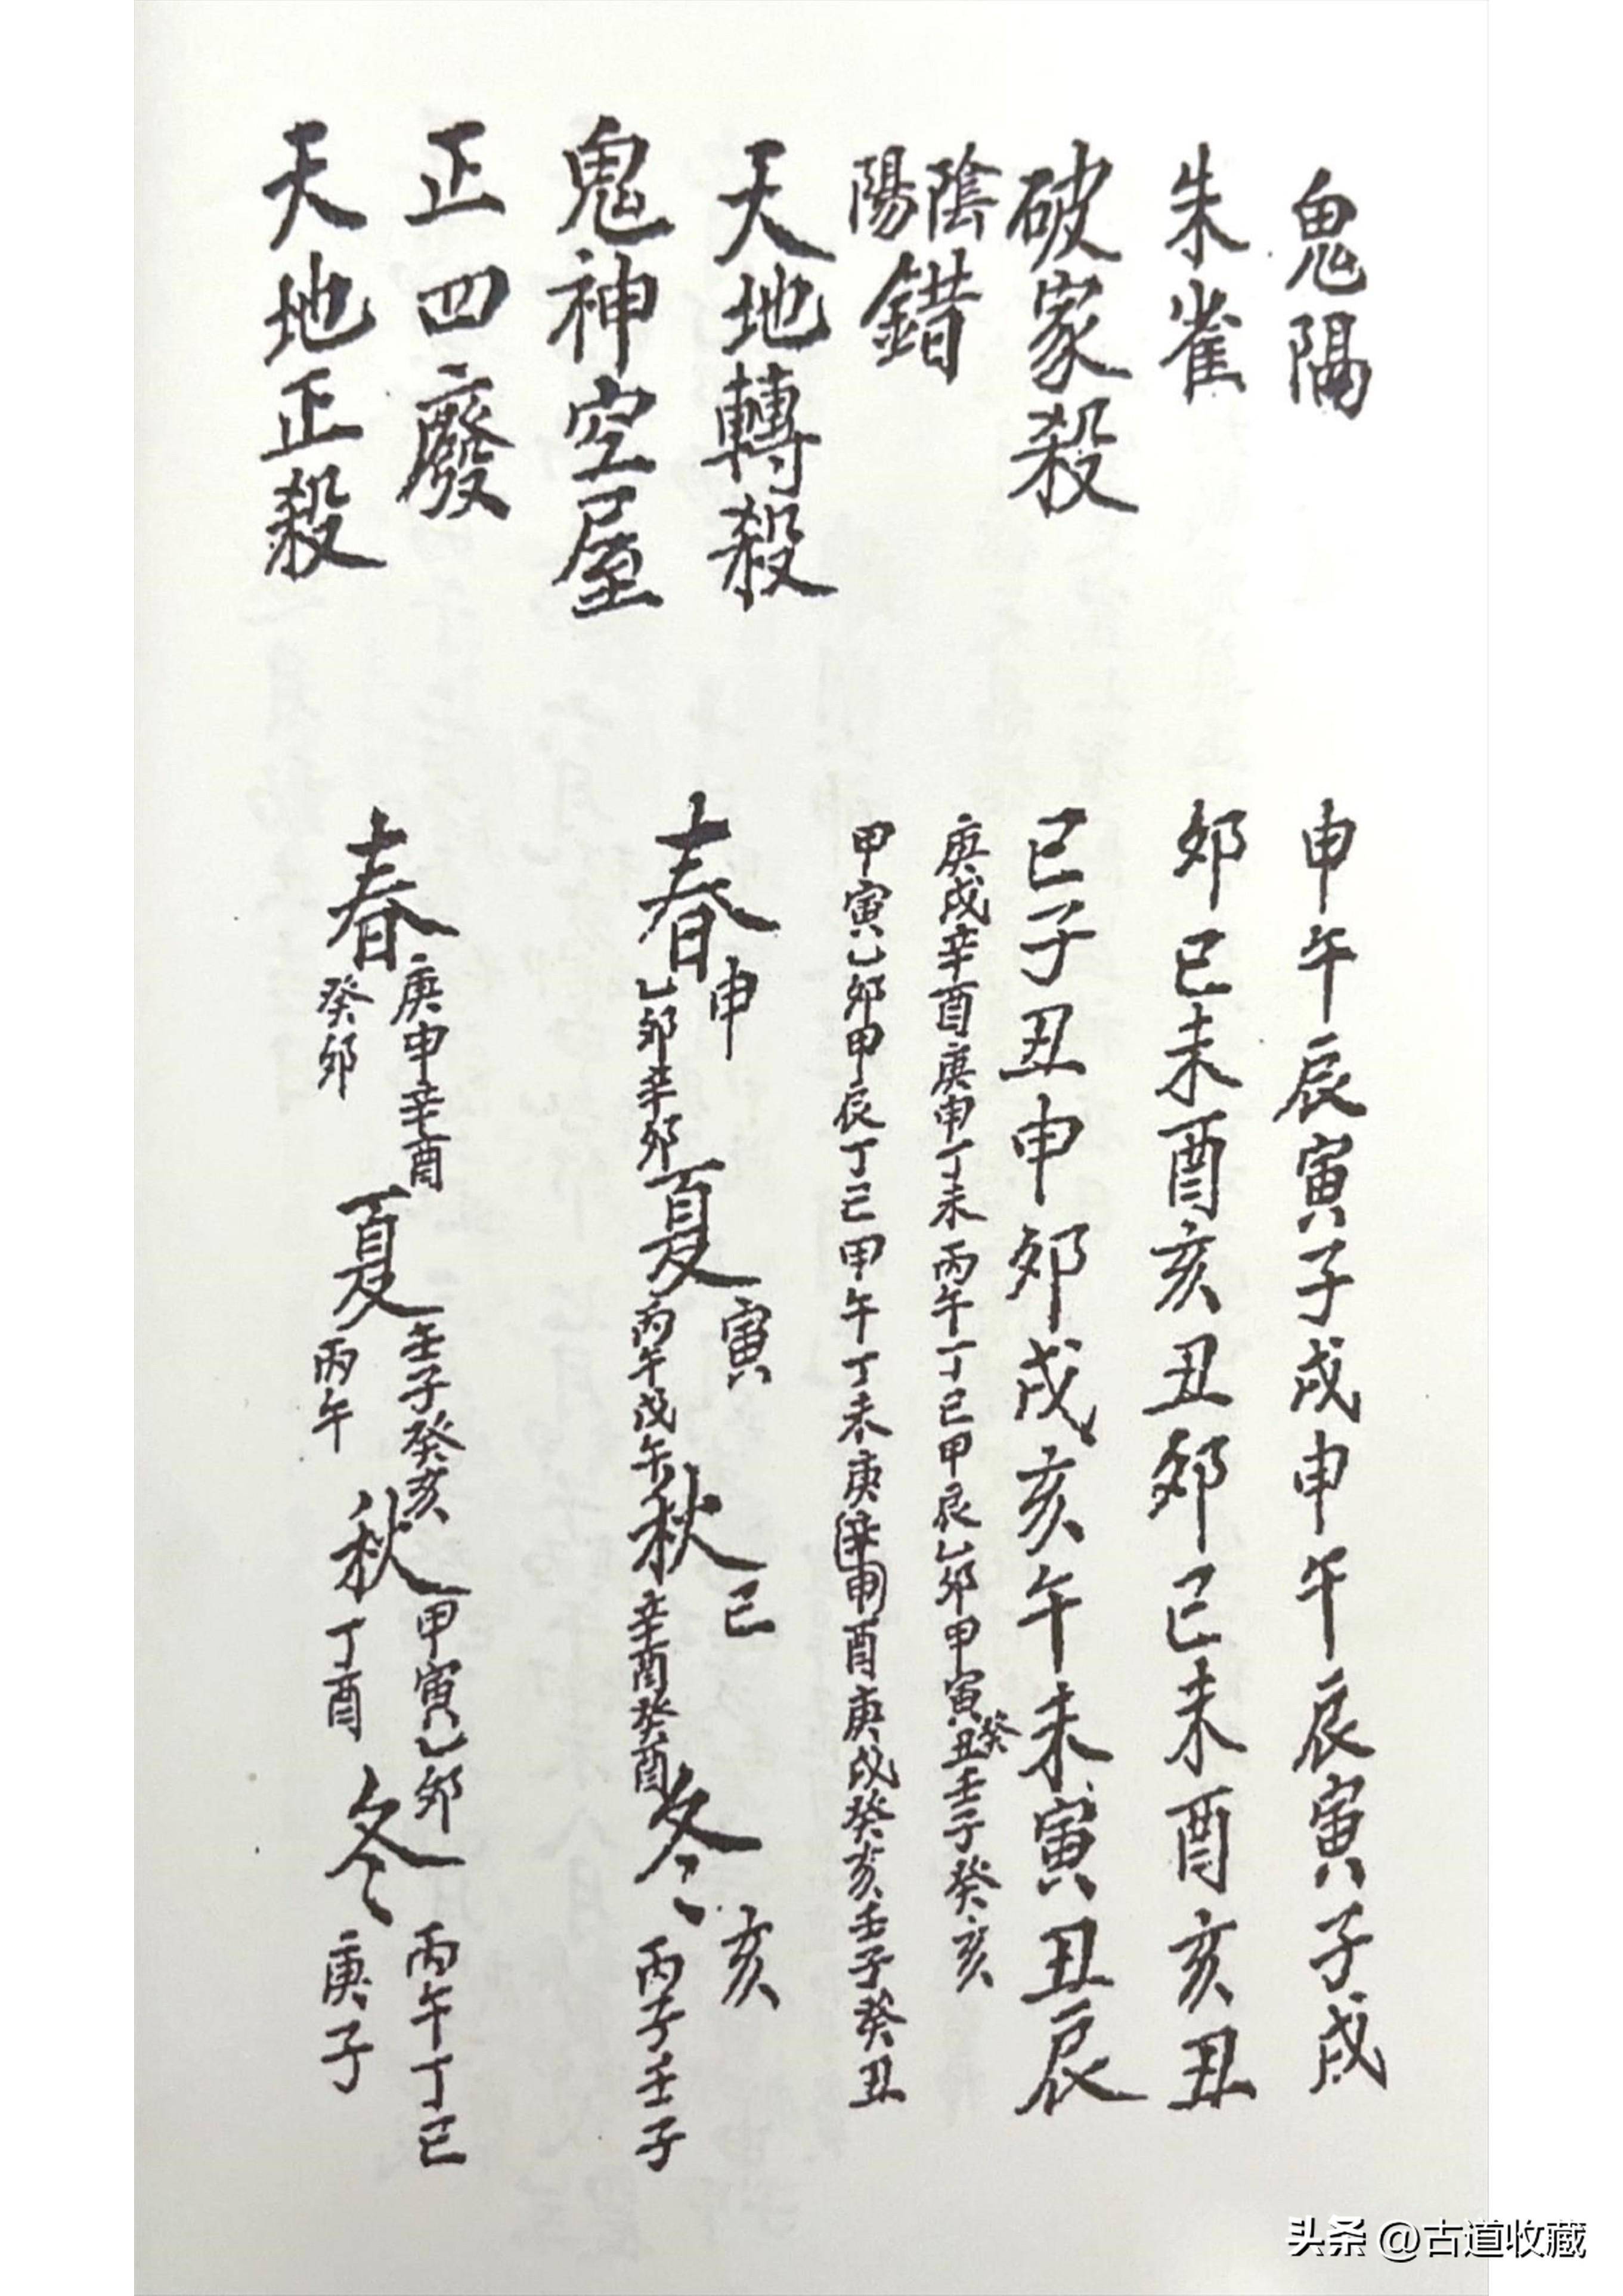 鬼隔 申午辰寅子戌申午辰寅子戌
朱雀 卯巳未酉亥丑卯巳未酉亥丑
破家殺 巳子丑申卯戌亥午未寅丑辰
陰陽錯
庚戌辛酉庚申丁未丙午丁巳甲辰乙卯甲寅癸丑壬子癸亥
甲寅乙卯甲辰丁巳甲午丁未庚辛申酉庚戌癸亥壬子癸丑
天地轉殺
鬼神空屋
春 申 乙卯辛卯 夏 寅 丙午戊午 秋 巳 辛酉癸酉 冬 亥 丙子壬子
正四廢
天地正殺
春 庚申辛酉 癸卯 夏 壬子癸亥 丙午 秋 甲寅乙卯 丁酉 冬 丙午丁巳 庚子
头条 @古道收藏